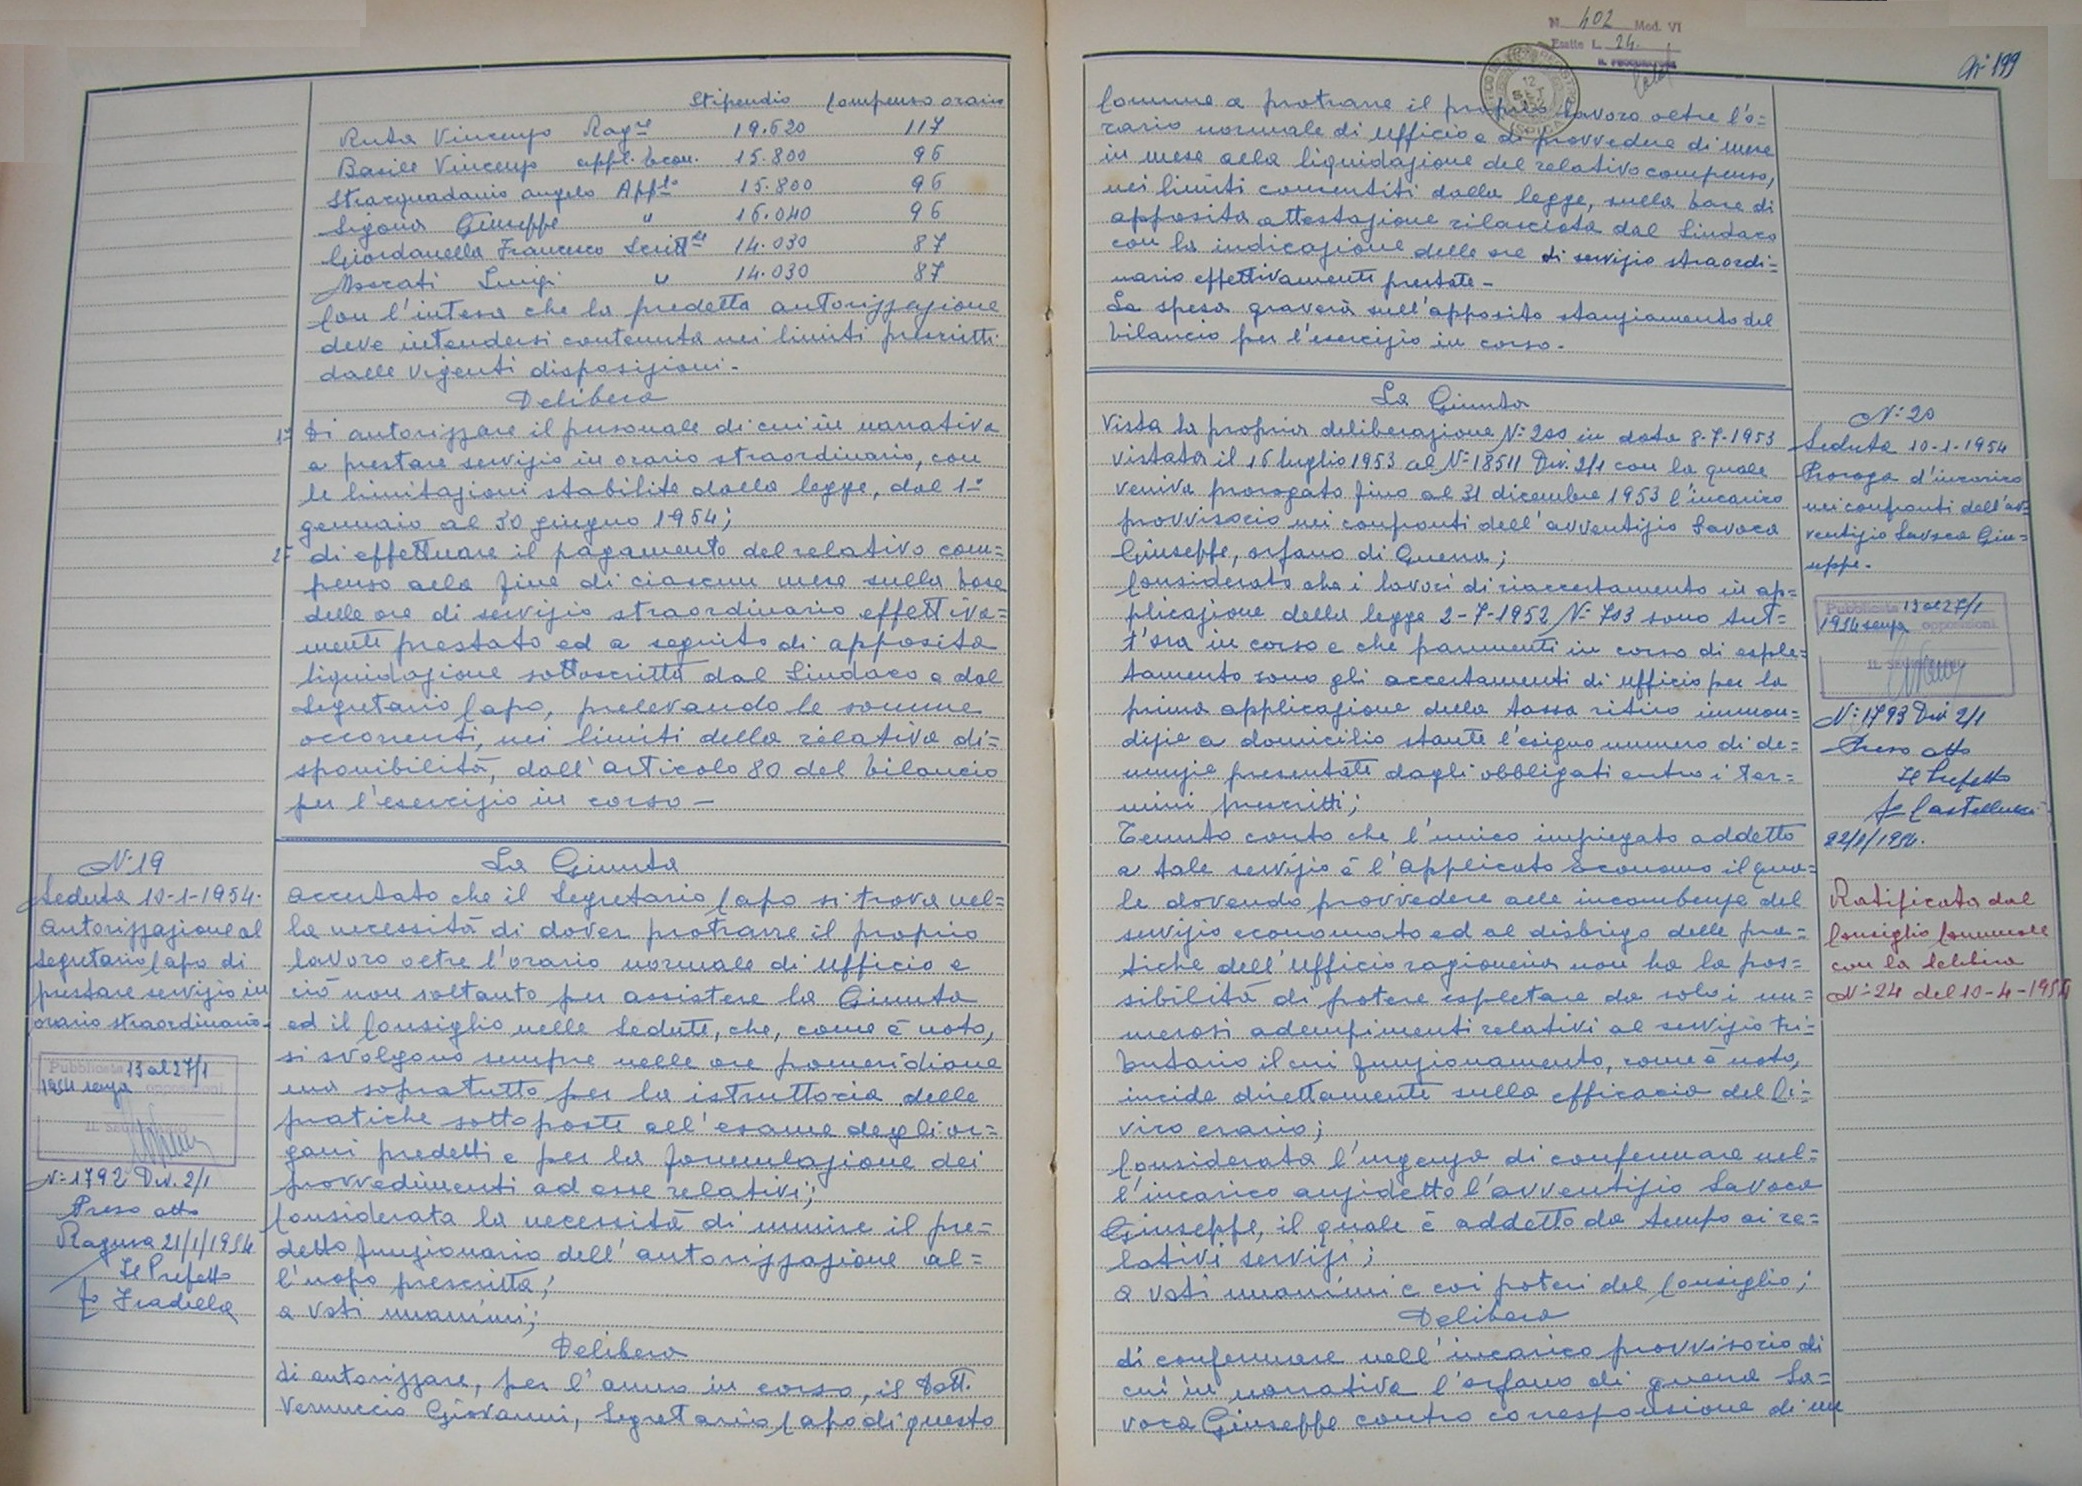 Stipendio Compenso orario
Ruta Vincenzo Rag.re 19.620 117
Basile Vincenzo appl. Econ. 15.800 96
Stracquadanio Angelo Appl.to 15.800 96
Sigona Giuseppe " 16.040 96
Giordanella Francesco Scritt.le 14.030 87
Moscati Luigi " 14.030 87
Con l'intesa che la predetta autorizzazione
deve intendersi contenuta nei limiti prescritti
dalle vigenti disposizioni.-
Delibera
1° Di autorizzare il personale di cui in narrativa
a prestare servizio in orario straordinario, con
le limitazioni stabilite dalla legge, dal 1°
gennaio al 30 giugno 1954;
2° di effettuare il pagamento del relativo com=
penso alla fine di ciascun mese sulla base
delle ore di servizio straordinario effettiva=
mente prestato ed a seguito di apposita
liquidazione sottoscritta dal Sindaco e dal
Segretario Capo, prelevando le somme
occorrenti, nei limiti della relativa di=
sponibilità, dall'articolo 80 del bilancio
per l'esercizio in corso -
N° 19
Seduta 10-1-1954.
Autorizzazione al
Segretario Capo di
prestare servizio in
orario straordinario.
Pubblicata 13 al 27/1
1954 senza opposizioni
N° 1792 Div. 2/1
Preso atto
Ragusa 21/1/1954
Il Prefetto
La Giunta
Accertato che il Segretario Capo si trova nel=
la necessità di dover protrarre il proprio
lavoro oltre l'orario normale di ufficio e
ciò non soltanto per assistere la Giunta
ed il Consiglio nelle sedute, che, come è noto,
si svolgono sempre nelle ore pomeridiane
ma sopratutto per la istruttoria delle
pratiche sottoposte all'esame degli or=
gani predetti e per la formulazione dei
provvedimenti ad esse relativi;
Considerata la necessità di munire il pre=
detto funzionario dell'autorizzazione al=
l'uopo prescritta;
a voti unanimi;
Delibera
di autorizzare, per l'anno in corso, il Dott.
Vernuccio Giovanni, Segretario Capo di questo
N. 402 Mod. VI
Esatte L. 24
N° 199
Comune a protrarre il proprio lavoro oltre l'o=
rario normale di ufficio e di provvedere di mese
in mese alla liquidazione del relativo compenso,
nei limiti consentiti dalla legge, sulla base di
apposita attestazione rilasciata dal Sindaco
con la indicazione delle ore di servizio straordi=
nario effettivamente prestate -
La spesa graverà sull'apposito stanziamento del
bilancio per l'esercizio in corso.
La Giunta
Vista la propria deliberazione N° 200 in data 8-7-1953
vistata il 16 luglio 1953 al N° 18511 Div. 2/1 con la quale
veniva prorogato fino al 31 dicembre 1953 l'incarico
provvisorio nei confronti dell'avventizio Savoca
Giuseppe, orfano di Guerra;
Considerato che i lavori di riaccertamento in ap=
plicazione della legge 2-7-1952 N° 703 sono tut=
t'ora in corso e che parimenti in corso di esple=
tamento sono gli accertamenti di ufficio per la
prima applicazione della tassa ritiro immon=
dizie a domicilio stante l'esiguo numero di de=
nunzie presentate dagli obbligati entro i ter=
mini prescritti;
Tenuto conto che l'unico impiegato addetto
a tale servizio è l'applicato Economo il qua=
le dovendo provvedere alle incombenze del
servizio economato ed al disbrigo delle pra=
tiche dell'Ufficio ragioneria non ha la pos=
sibilità di potere espletare da solo i nu=
merosi adempimenti relativi al servizio tri=
butario il cui funzionamento, come è noto,
incide direttamente sulla efficacia del Ci=
vico erario;
Considerata l'urgenza di confermare nel=
l'incarico anzidetto l'avventizio Savoca
Giuseppe, il quale è addetto da tempo ai re=
lativi servizi;
a voti unanimi e coi poteri del Consiglio;
Delibera
di confermare nell'incarico provvisorio di
cui in narrativa l'orfano di guerra Sa=
voca Giuseppe contro corresponsione di un
N° 20
Seduta 10-1-1954
Proroga d'incarico
nei confronti dell'av=
ventizio Savoca Giu=
seppe.
Pubblicata 13 al 27/1
1954 senza opposizioni
N° 1793 Div 2/1
Preso atto
Il Prefetto
22/1/1954.
Ratificata dal
Consiglio Comunale
con la delibera
N° 24 del 10-4-1954